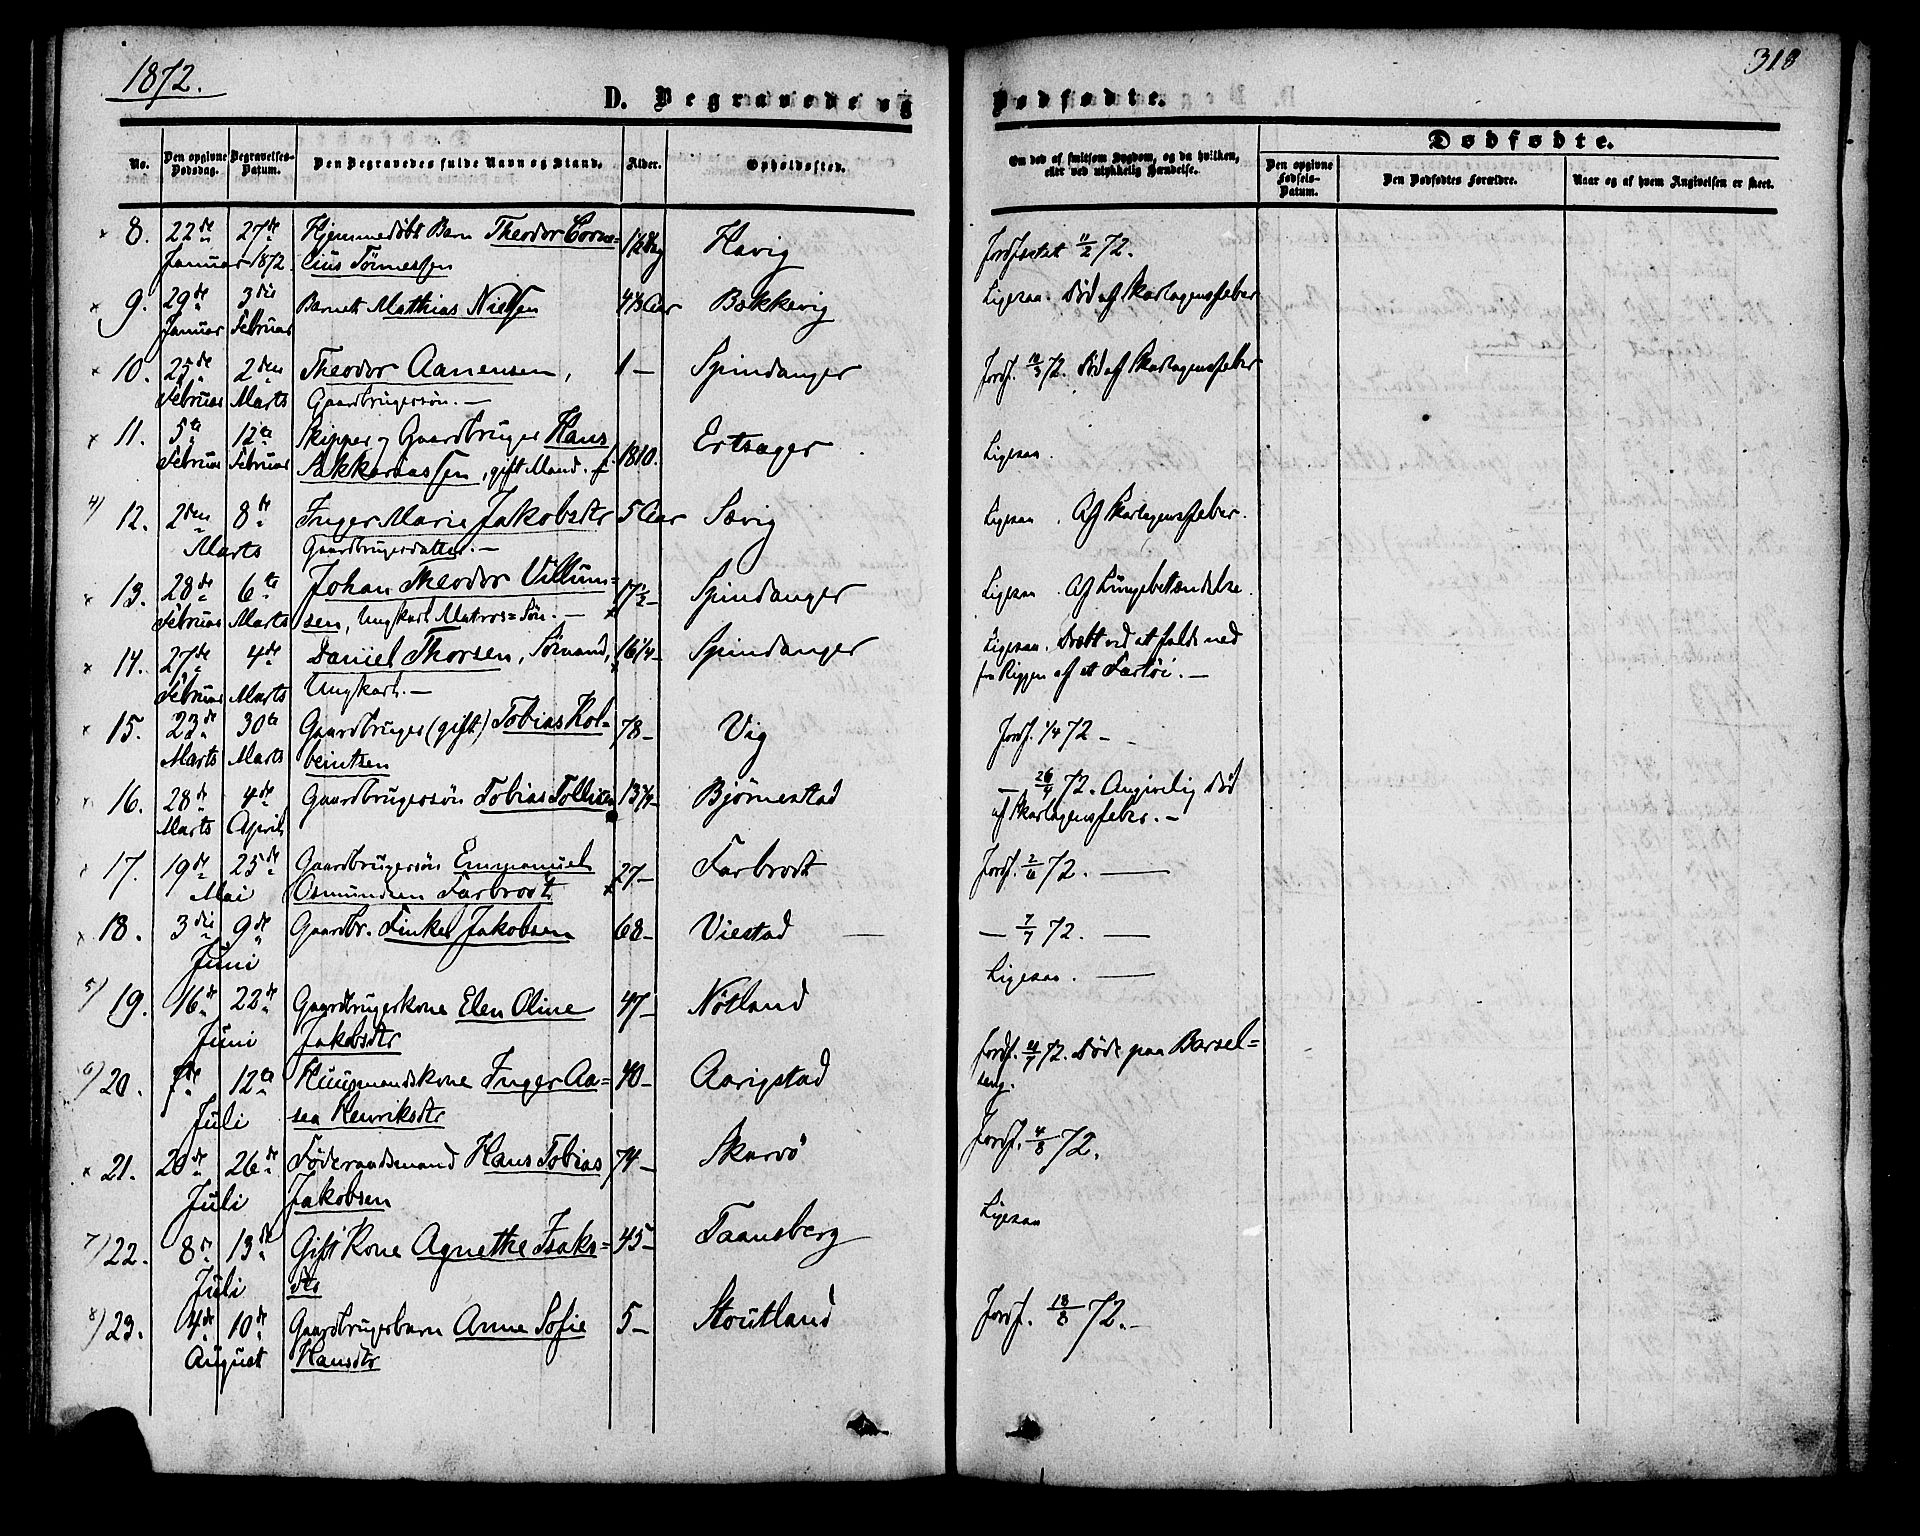 1872.
318
D. Begravede og Dødfødte.
No. Den opgivne Dødsdag. Begravelses-Datum. Den Begravedes fulde Navn og Stand. Alder. Opholdssted. Om død af smitsom Sygdom, og da hvilken, eller ved ulykkelig Hændelse.
Dødfødte.
Den opgivne Fødsels-Datum. Den Dødfødtes Forældre. Naar og af hvem Angivelsen er skeet.
× 8. 22de 27de Hjemmedøbt Barn Theodor Corne= 1/2 Dag Havig Jordfæstet 11/2 72.
Januar 1872. lius Tønnessen
× 9. 29de 3die Barnet Mathias Nielsen Aar Bækkevig Ligesaa. Død af Skarlagensfeber
Januar Februar
× 10. 25de 2den Theodor Aanensen, 1 — Spindanger Jordf. 72. Død af Skarlagensfeber
Februar Marts Gaardbrugersøn. —
× 11. 5te 12te Skipper og Gaardbruger Hans 1810. Ertsager Ligesaa.
Februar Februar Sakkariassen, gift Mand. f.
4) 12. 2den 8de Inger Marie Jakobsdtr 5 Aar Sævig Ligesaa. Af Skarlagensfeber.
Marts Gaardbrugerdatter. —
× 13. 28de 6te Johan Theodor Villum= 17 1/2 — Spindanger Ligesaa. Af Lungebetændelse.
Februar Marts sen, Ungkarl Matros=Søn. —
× 14. 27de 4de Daniel Thorsen, Sømand, 16 1/4 — Spindanger Ligesaa. Dræbt ved at falde ned
Februar Marts Ungkarl. — fra Riggen af et Fartøi. —
× 15. 23de 30te Gaardbruger (gift) Tobias Kol= 78 — Vig Jordf. 1/4 72 —
Marts Marts beintsen
16. 28de 4de Gaardbrugersøn Tobias Tollisen Bjørnestad — 26/4 72. Angivelig Død
Marts April af Skarlagensfeber. —
× 17. 19de 25de Gaardbrugersøn Emmanuel 27 — Farbrodt Jordf. 2/6 72. —
Mai Osmundsen Farbrodt
× 18. 3die 9de Gaardbr. Finkel Jakobsen 68 — Viestad — — 7/7 72. —
Juni
5) 19. 16de 22de Gaardbrugerkone Elen Oline 47 — Nøtland Ligesaa. —
Juni Jakobsdtr
6) 20. 7de 12te Huusmandskone Inger Aa= 40 — Aarigstad Jordf. 72. Døde paa Barsel=
Juli sea Henriksdtr seng.
× 21. 20de 26de Føderaadsmand Hans Tobias 74 — Skarvø Jordf. 4/8 72.
Juli Jakobsen
7) 22. 8de 13de Gift Kone Agnethe Isaks= 45 — Taansberg Ligesaa
Juli dtr
8) 23. 4de 10de Gaardbrugerbarn Anne Sofie 5 — Stoutland Jordf. 18/8 72. —
August Hansdtr